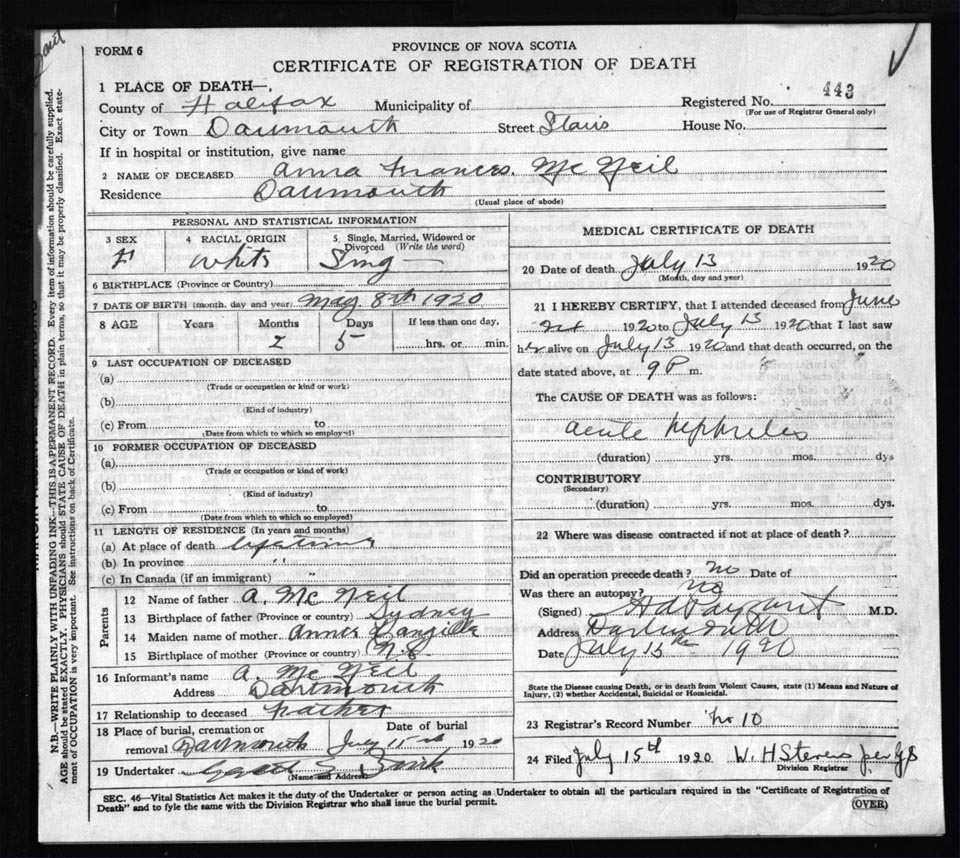 FORM 6
PROVINCE OF NOVA SCOTIA
CERTIFICATE OF REGISTRATION OF DEATH
443
1 PLACE OF DEATH—
County of Halifax Municipality of Registered No.
(For use of Registrar General only)
City or Town Darmouth Street Stairs House No.
If in hospital or institution, give name
2 NAME OF DECEASED Anna Frances. McNeil
Residence Darmouth
(Usual place of abode)
PERSONAL AND STATISTICAL INFORMATION
3 SEX F
4 RACIAL ORIGIN White
5 Single, Married, Widowed or Divorced (Write the word) Sing
6 BIRTHPLACE (Province or Country)
7 DATE OF BIRTH (month, day and year) May 8th 1920
8 AGE Years Months Days If less than one day,
2 5 hrs. or min.
9 LAST OCCUPATION OF DECEASED
(a)
(Trade or occupation or kind or work)
(b)
(Kind of industry)
(c) From to
(Date from which to which so employed)
10 FORMER OCCUPATION OF DECEASED
(a)
(Trade or occupation or kind of work)
(b)
(Kind of industry)
(c) From to
(Date from which to which so employed)
11 LENGTH OF RESIDENCE (In years and months)
(a) At place of death lifetime
(b) In province "
(c) In Canada (if an immigrant) "
Parents
12 Name of father A. McNeil
13 Birthplace of father (Province or country) Sydney
14 Maiden name of mother Annie
15 Birthplace of mother (Province or country) N.S.
16 Informant's name A. McNeil
Address Dartmouth
17 Relationship to deceased father
18 Place of burial, cremation or removal Darmouth Date of burial July 15th 1920
19 Undertaker
(Name and Address)
MEDICAL CERTIFICATE OF DEATH
20 Date of death July 13 1920
(Month, day and year)
21 I HEREBY CERTIFY, that I attended deceased from June
1920 to July 13 1920 that I last saw
her alive on July 13 1920 and that death occurred, on the
date stated above, at 9 P m.
The CAUSE OF DEATH was as follows:
acute nephritis
(duration) yrs. mos. dys
CONTRIBUTORY
(Secondary)
(duration) yrs. mos. dys.
22 Where was disease contracted if not at place of death?
Did an operation precede death? no Date of
Was there an autopsy? no
(Signed) M.D.
Address Dartmouth
Date July 15th 1920
State the Disease causing Death, or in death from Violent Causes, state (1) Means and Nature of
Injury, (2) whether Accidental, Suicidal or Homicidal.
23 Registrar's Record Number No 10
24 Filed July 15th 1920 W. H Stevens per
Division Registrar
SEC. 46—Vital Statistics Act makes it the duty of the Undertaker or person acting as Undertaker to obtain all the particulars required in the "Certificate of Registration of
Death" and to fyle the same with the Division Registrar who shall issue the burial permit.
(OVER)
N.B.—WRITE PLAINLY WITH UNFADING INK—THIS IS A PERMANENT RECORD. Every item of information should be carefully supplied.
AGE should be stated EXACTLY. PHYSICIANS should STATE CAUSE OF DEATH in plain terms, so that it may be properly classified. Exact statement of OCCUPATION is very important. See instructions on back of Certificate.